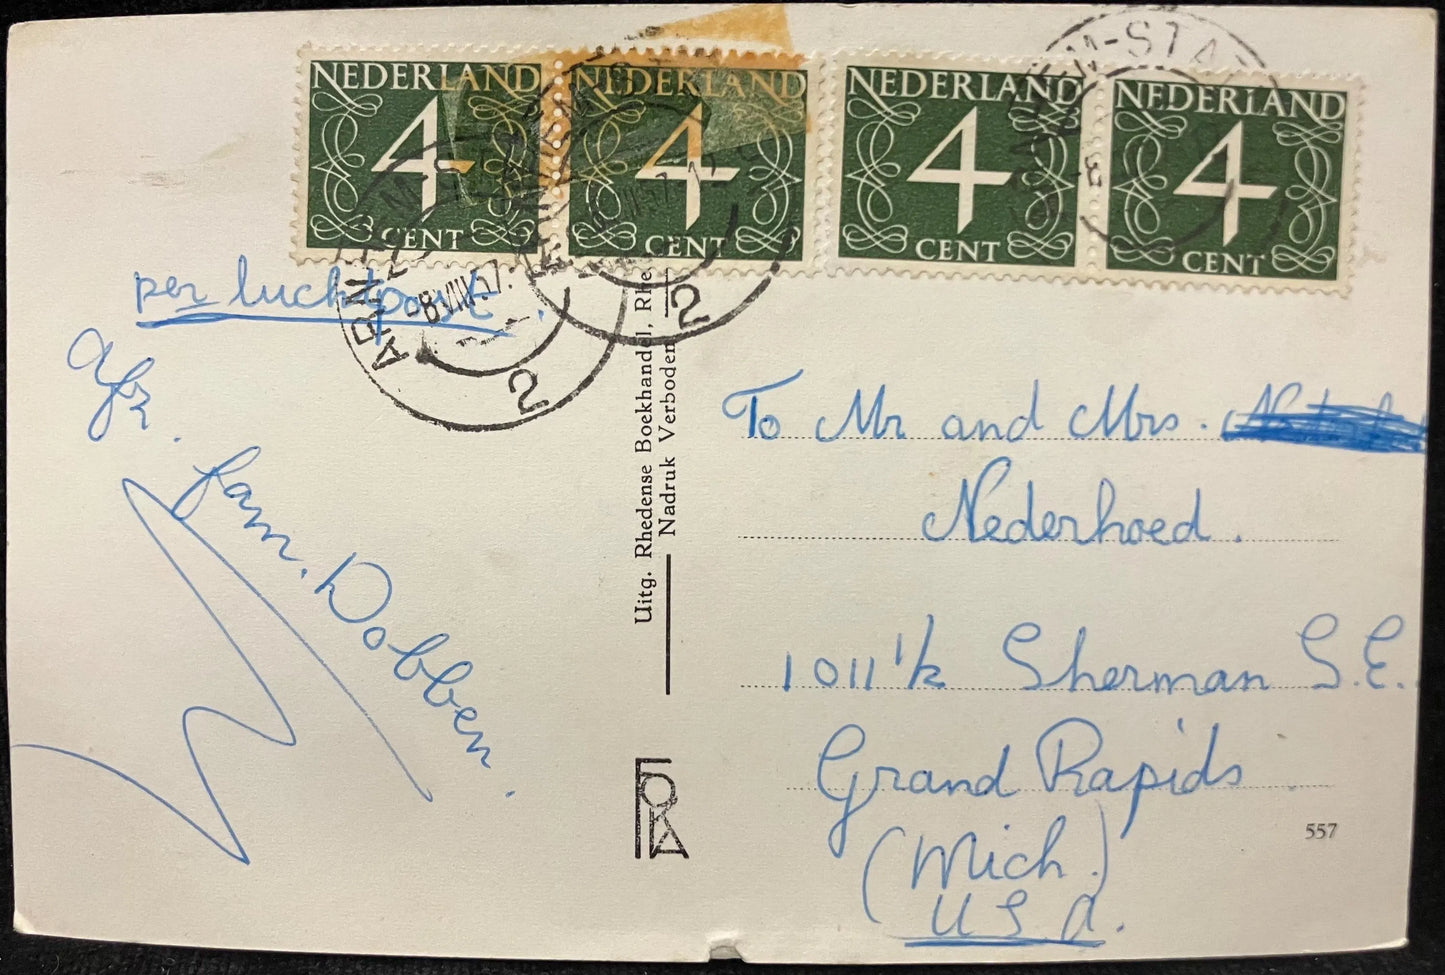 NEDERLAND
4
CENT
NEDERLAND
4
CENT
NEDERLAND
4
CENT
NEDERLAND
4
CENT
-8.VIII.57.
2
2
per luchtpost.
Afz.
fam. Dobben.
Uitg. Rhedense Boekhandel, Rhe
Nadruk Verboden
FOKA
To Mr and Mrs.
Nederhoed.
1011 1/2 Sherman S.E.
Grand Rapids
(Mich.)
USA.
557